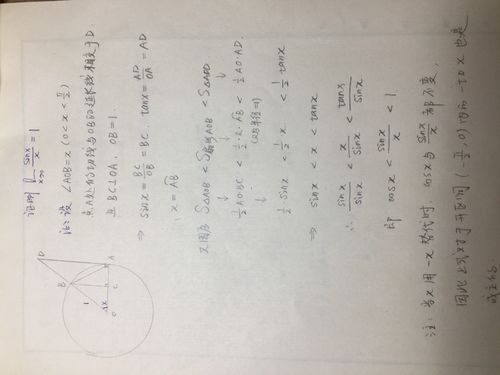 证明 lim x→0 sinx/x = 1
证: 设 ∠AOB = x (0 < x < π/2)
点A处的切线与OB的延长线相交于D.
且 BC⊥OA, OB=1.
⇒ sinx = BC/OB = BC tanx = AD/OA = AD
x = AB
又因为 S△AOB < S扇形AOB < S△AOD
½ AO·BC < ½·r·AB < ½ AO·AD.
↓ (又∵半径=1) ↓
½ sinx < ½ x < ½ tanx
⇒ sinx < x < tanx
∴ sinx/sinx < x/sinx < tanx/sinx
即 cosx < sinx/x < 1
注: 当x用-x替代时, cosx与 sinx/x 都不变,
因此上式对于开区间 (-π/2, 0) 内的一切x也是
成立的
D
B
A
C
O
1
x